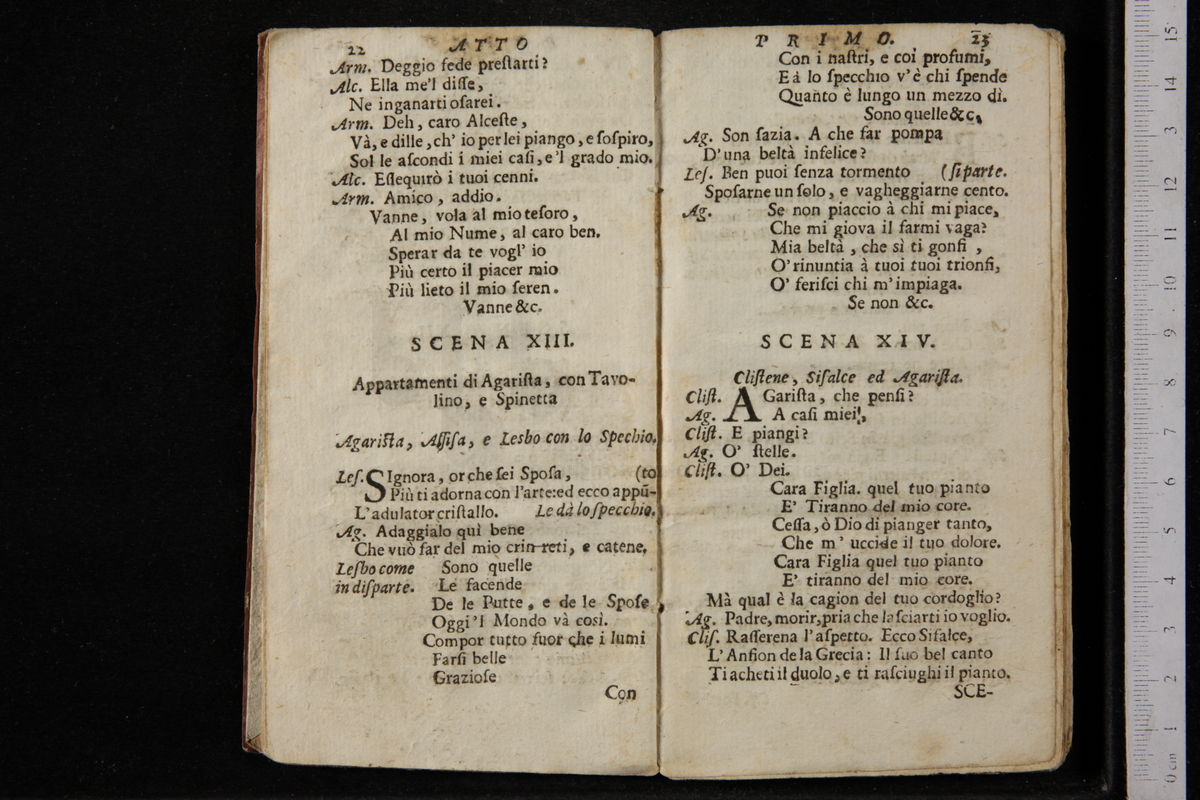 22 ATTO
Arm. Deggio fede preſtarti?
Alc. Ella me'l diſſe,
Ne inganarti oſarei.
Arm. Deh, caro Alceſte,
Và, e dille, ch' io per lei piango, e ſoſpiro,
Sol le aſcondi i miei caſi, e 'l grado mio.
Alc. Eſſequirò i tuoi cenni.
Arm. Amico, addio.
Vanne, vola al mio teſoro,
Al mio Nume, al caro ben.
Sperar da te vogl' io
Più certo il piacer mio
Più lieto il mio ſeren.
Vanne &c.
SCENA XIII.
Appartamenti di Agariſta, con Tavo-
lino, e Spinetta
Agariſta, Aſſiſa, e Lesbo con lo Spechio.
Leſ. SIgnora, or che ſei Spoſa, (to
Più ti adorna con l'arte: ed ecco appū-
L'adulator criſtallo. Le dà lo ſpecchio.
Ag. Adaggialo quì bene
Che vuò far del mio crin reti, e catene.
Lesbo come Sono quelle
in diſparte. Le facende
De le Putte, e de le Spoſe,
Oggi 'l Mondo và così.
Compor tutto fuor che i lumi
Farſi belle
Grazioſe
Con
PRIMO. 23
Con i naſtri, e coi profumi,
Ed lo ſpecchio v'è chi ſpende
Quanto è lungo un mezzo dì.
Sono quelle &c.
Ag. Son ſazia. A che far pompa
D'una beltà infelice?
Leſ. Ben puoi ſenza tormento (ſi parte.
Spoſarne un ſolo, e vagheggiarne cento.
Ag. Se non piaccio à chi mi piace,
Che mi giova il farmi vaga?
Mia beltà, che sì ti gonfi,
O' rinuntia à tuoi tuoi trionfi,
O' feriſci chi m'impiaga.
Se non &c.
SCENA XIV.
Cliſtene, Siſalce ed Agariſta.
Cliſt. AGariſta, che penſi?
Ag. A caſi miei!,
Cliſt. E piangi?
Ag. O' ſtelle.
Cliſt. O' Dei.
Cara Figlia. quel tuo pianto
E' Tiranno del mio core.
Ceſſa, ò Dio di pianger tanto,
Che m' uccide il tuo dolore.
Cara Figlia quel tuo pianto
E' tiranno del mio core.
Mà qual è la cagion del tuo cordoglio?
Ag. Padre, morir, pria che laſciarti io voglio.
Cliſ. Raſſerena l'aſpetto. Ecco Siſalce,
L'Anfion de la Grecia: Il ſuo bel canto
Ti acheti il duolo, e ti raſciughi il pianto.
SCE-
0 cm 1 2 3 4 5 6 7 8 9 10 11 12 13 14 15